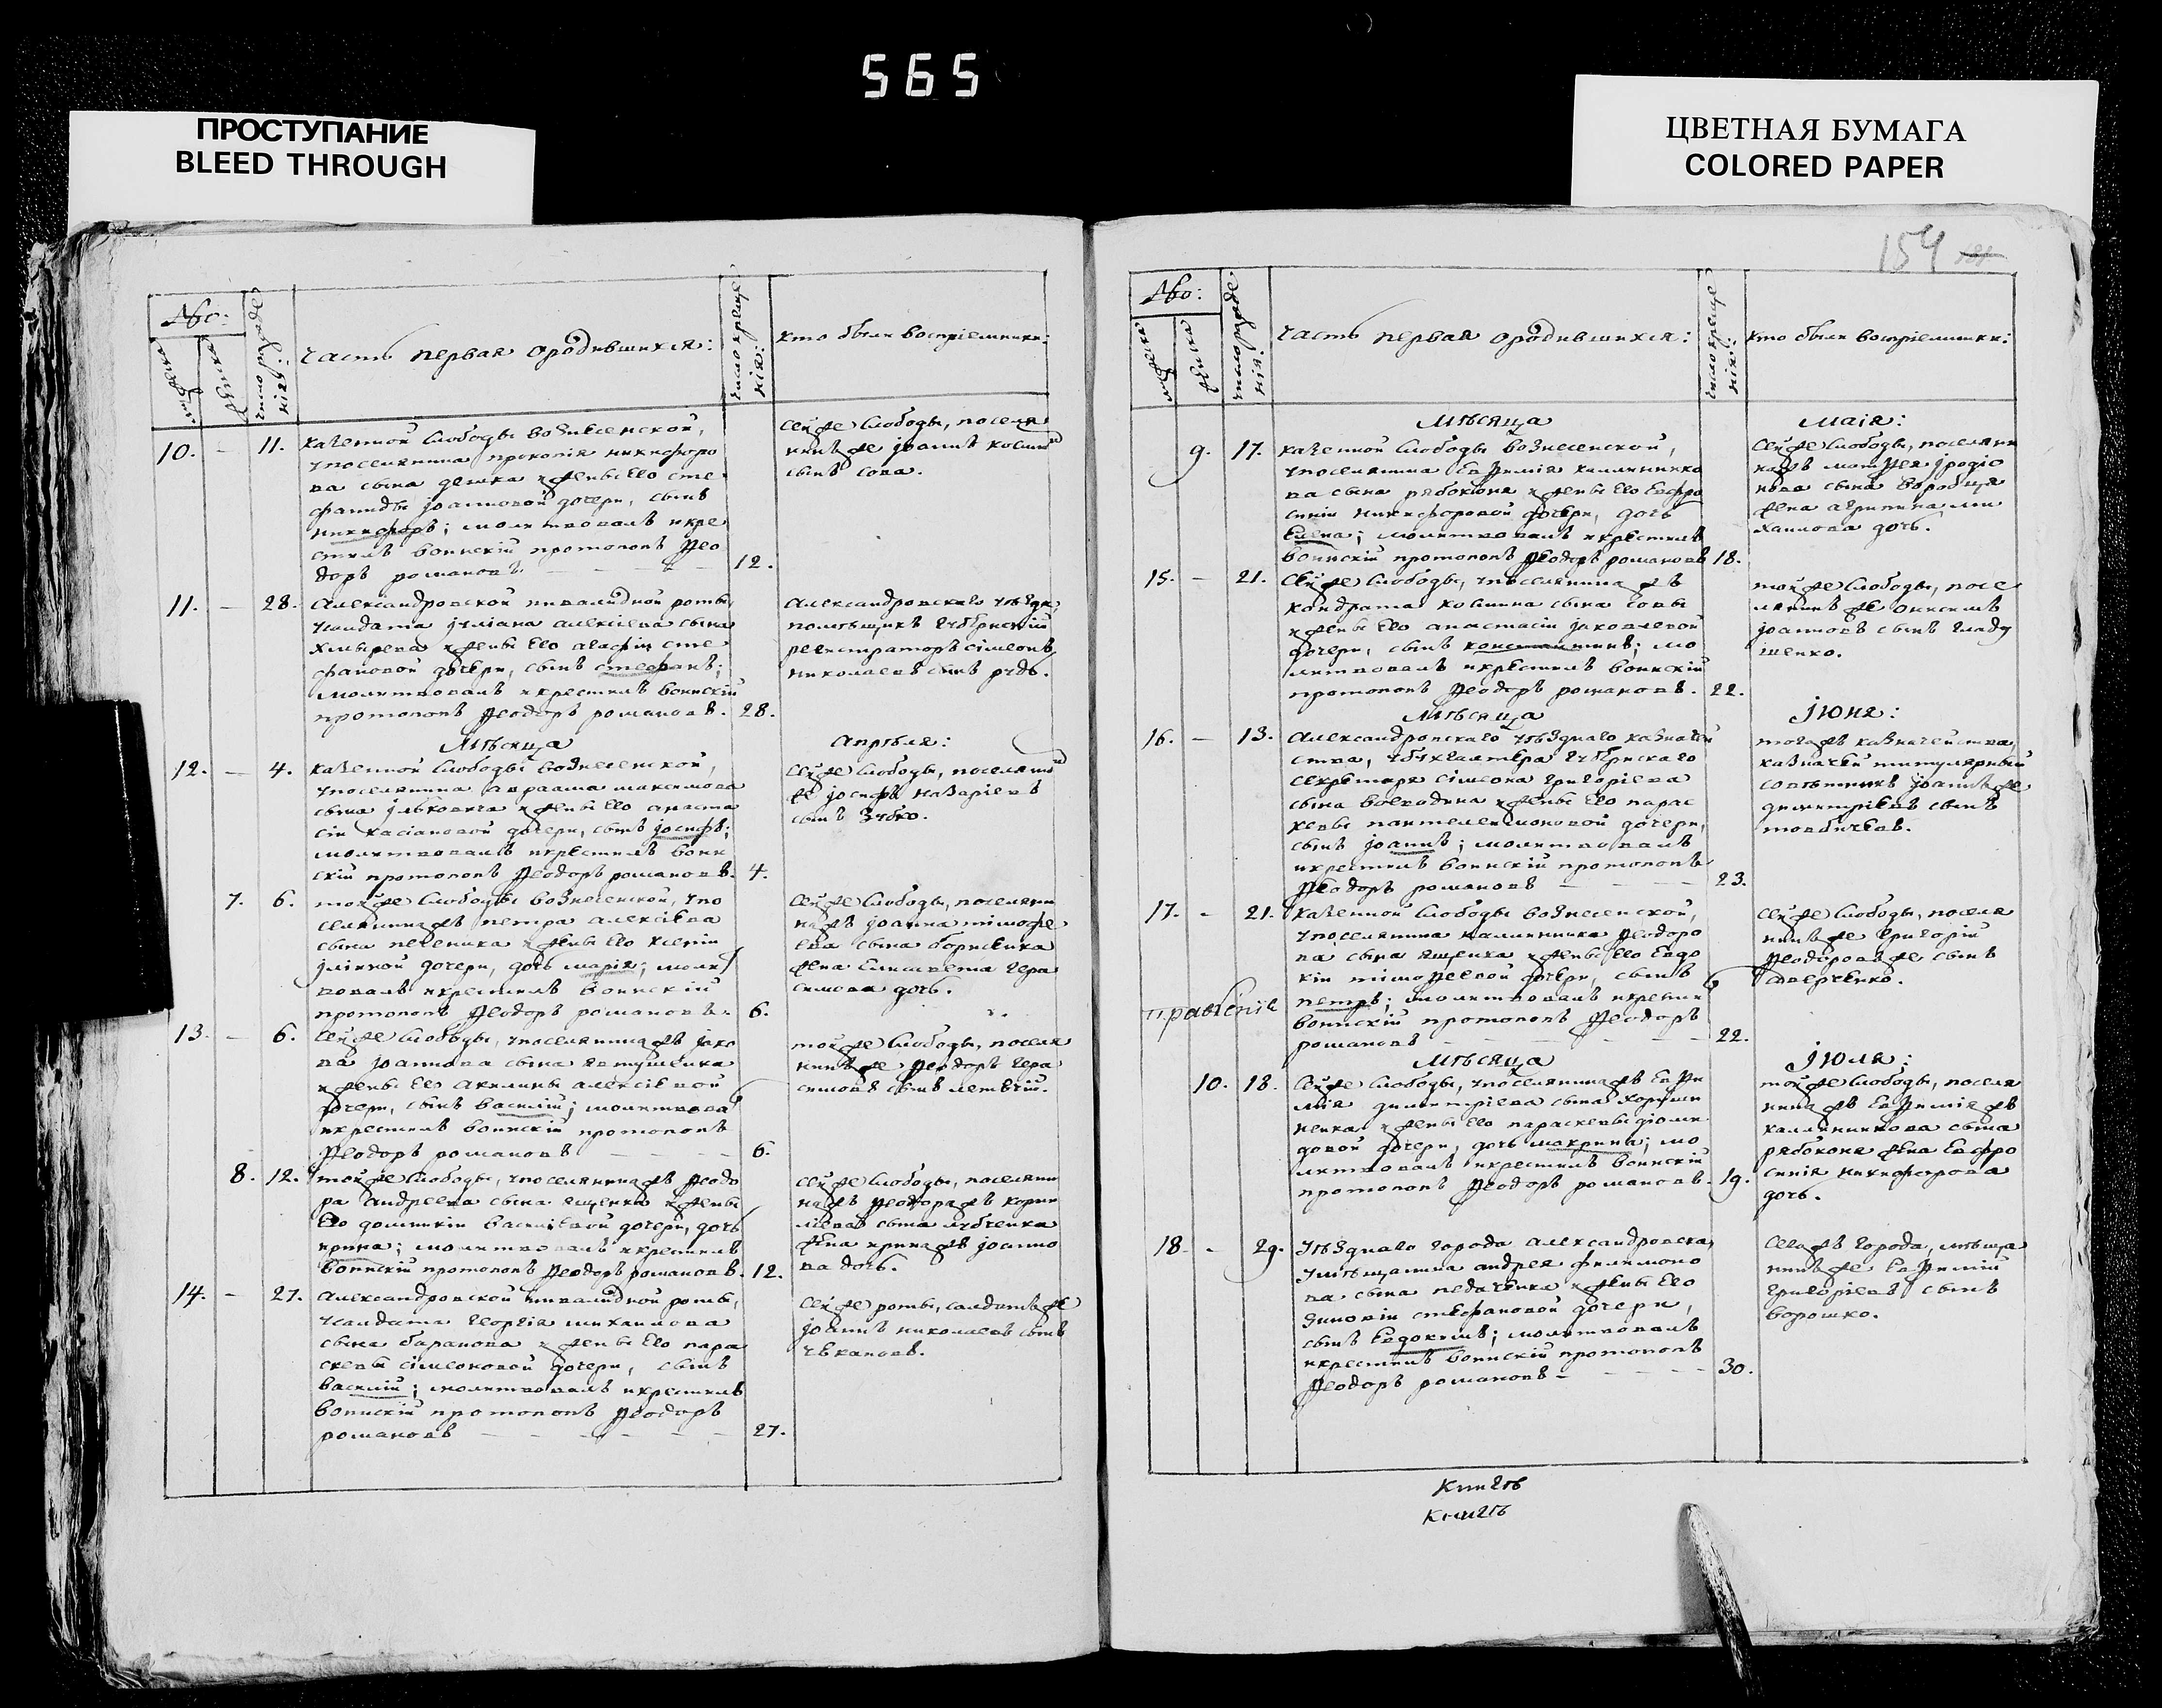 565
ПРОСТУПАНИЕ
BLEED THROUGH
ЦВЕТНАЯ БУМАГА
COLORED PAPER
154
№о:
мужеска
женска
число рожде
нія:
часть первая ородившихся:
число креще
нія:
кто были воспріемники:
10. - 11. казенной слободы вознесенской,
упоселянина прокопія никифоро
ва сына дешка ижены его сте
фаниды іоанновой дочери, сынъ
никифоръ; молитвовалъ икре
стилъ воинскій протопопъ Ѳео
доръ романовъ. 12.
сейже слободы, поселя
нинъже іоаннъ косминъ
сынъ сова.
11. - 28. александровской инвалидной роты,
усалдата іуліана алексіева сына
хмырева ижены его агафіи сте
фановой дочери, сынъ стефанъ;
молитвовалъ икрестилъ воинскій
протопопъ Ѳеодоръ романовъ. 28.
александровскаго уѣзда
помѣщикъ губернскій
регистраторъ сімеонъ
николаевъ сынъ рудь.
Мѣсяца
апрѣля:
12. - 4. казенной слободы вознесенской,
упоселянина авраама максимова
сына ільковича ижены его анаста
сіи касіановой дочери, сынъ іосифъ;
молитвовалъ икрестилъ воин
скій протопопъ Ѳеодоръ романовъ. 4.
сейже слободы, поселянинъ
же іосифъ назаріевъ
сынъ зубко.
7. 6. тойже слободы вознесенской, упо
селянинажъ петра алексіева
сына печеника ижены его ксеніи
іліиной дочери, дочь марія; молит
вовалъ икрестилъ воинскій
протопопъ Ѳеодоръ романовъ. 6.
сейже слободы, поселяни
нажъ іоанна тімоѳе
ева сына борисенка
жена елисавета гера
симова дочь.
13. - 6. сейже слободы, упоселянинажъ іако
ва іоаннова сына евтушенка
ижены его акилины алексіевой
дочери, сынъ василій; молитвовалъ
икрестилъ воинскій протопопъ
Ѳеодоръ романовъ 6.
тойже слободы, поселя
нинъже Ѳеодоръ гера
симовъ сынъ легвій.
8. 12. тойже слободы, упоселянинажъ Ѳеодо
ра андреева сына ященка ижены
его домникіи василіевой дочери, дочь
ирина; молитвовалъ икрестилъ
воинскій протопопъ Ѳеодоръ романовъ. 12.
сейже слободы, поселяни
нажъ Ѳеодоражъ корни
ліева сына лубченка
жена иринажъ іоанно
ва дочь.
14. - 27. александровской инвалидной роты,
усалдата георгія михаилова
сына баранова ижены его пара
скевы сімеоновой дочери, сынъ
василій; молитвовалъ икрестилъ
воинскій протопопъ Ѳеодоръ
романовъ 27.
сейже роты, салдатъже
іоаннъ николаевъ сынъ
чекановъ.
№о:
мужеска
женска
число рожде
нія:
часть первая ородившихся:
число креще
нія:
кто были воспріемники:
Мѣсяца
маія:
9. 17. казенной слободы вознесенской,
упоселянина евѳимія каллиннико
ва сына рябоконя ижены его евфро
синіи никифоровой дочери, дочь
елена; молитвовалъ икрестилъ
воинскій протопопъ Ѳеодоръ романовъ 18.
сейже слободы, поселяни
нажъ матѳея іродіо
нова сына воробця
жена агрипина ми
хаилова дочь.
15. - 21. сейже слободы, упоселянинажъ
кондрата космина сына совы
ижены его анастасіи іаковлевой
дочери, сынъ константинъ; мо
литвовалъ икрестилъ воинскій
протопопъ Ѳеодоръ романовъ. 22.
тойже слободы, посе
лянинъже онисимъ
іоанновъ сынъ гладу
щенко.
Мѣсяца
Іюня:
16. - 13. александровскаго уѣзднаго казначей
ства, убухгалтера губернскаго
секретаря сімеона григоріева
сына воеводина ижены его парас
кевы пантелеимоновой дочери,
сынъ іоаннъ; молитвовалъ
икрестилъ воинскій протопопъ
Ѳеодоръ романовъ 23.
тогожъ казначейства,
казначей титулярный
совѣтникъ іоаннъже
димитріевъ сынъ
товбичевъ.
17. - 21. казенной слободы вознесенской,
упоселянина каллинника Ѳеодоро
ва сына ященка ижены его евдо
кіи тімоѳеевой дочери, сынъ
петръ; молитвовалъ икрестилъ
воинскій протопопъ Ѳеодоръ
романовъ 22.
сейже слободы, поселя
нинъже григорій
Ѳеодоровъже сынъ
сверченко.
правленіе
Мѣсяца
Іюля:
10. 18. сейже слободы, упоселянинажъ евѳи
мія димитріева сына хоруж
ненка ижены его параскевы діоми
довой дочери, дочь макрина; мо
литвовалъ икрестилъ воинскій
протопопъ Ѳеодоръ романовъ. 19.
тойже слободы, поселя
нинажъ евѳиміяжъ
каллинникова сына
рябоконя жена евфро
синія никифорова
дочь.
18. - 29. уѣзднаго города александровска,
умѣщанина андрея филимоно
ва сына педаченка ижены его
зиновіи стефановой дочери,
сынъ евдокимъ; молитвовалъ
икрестилъ воинскій протопопъ
Ѳеодоръ романовъ 30.
сегожъ города, мѣща
нинъже евѳимій
григоріевъ сынъ
ворошко.
Книгѣ
Книгѣ